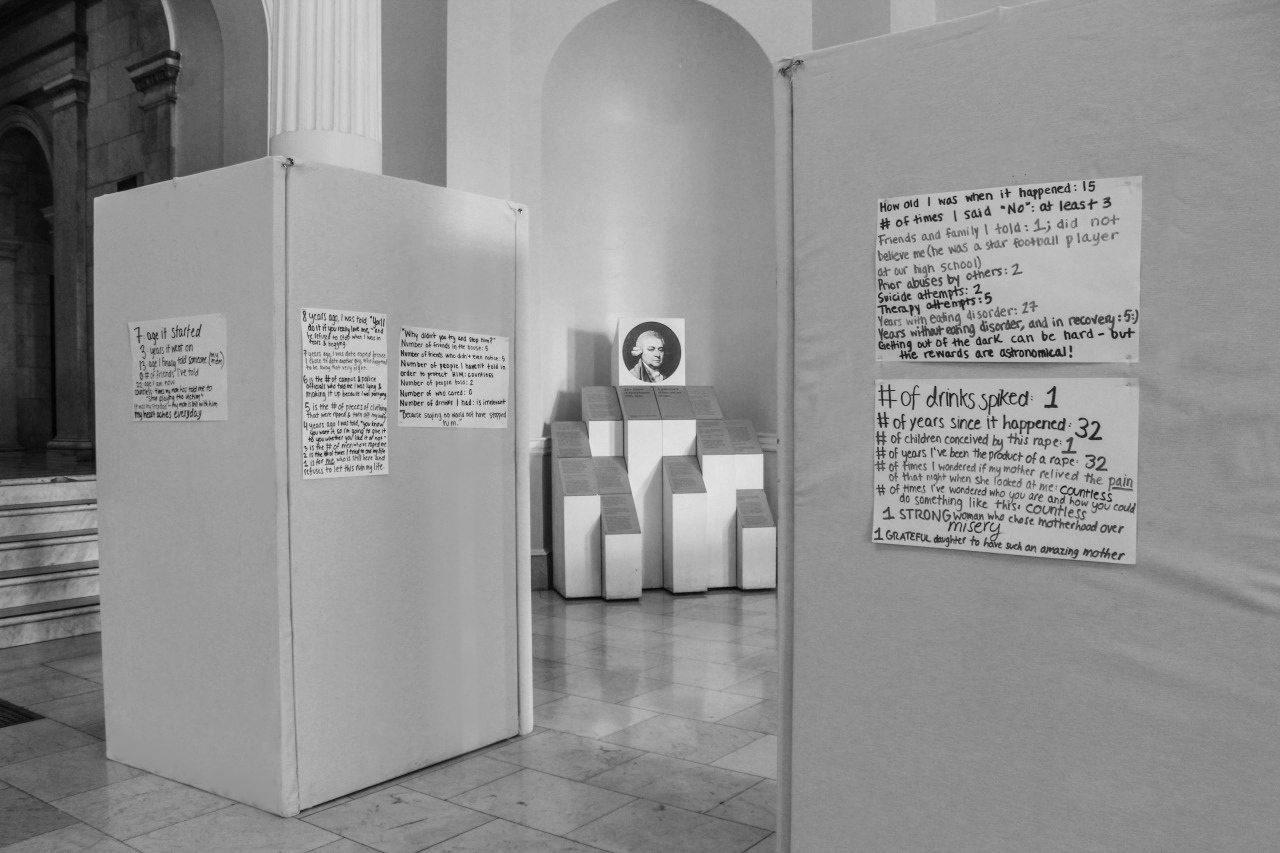 7 - age it started
3 years it went on
13 age i finally told someone (my mom)
0 # of friends I've told
22 age I am now
countless times my mom has told me to
"stop playing the victim"
it was my stepdad - my mom is still with him
my heart aches everyday
8 years ago, I was told, "You'll
do it if you really love me," - and
he refused to stop when I was in
tears & begging.
7 years ago, I was date raped
to be away that very night.
6 is the # of campus & police
officials who told me I was lying &
making it up because I was partying
5 is the # of pieces of clothing
that were ripped & torn off my body
4 years ago I was told, "you know
you want it so I'm going to give it
to you whether you like it or not"
3 is the # of men who've raped me
2 is the # of times I tried to end my life
1 is for me, who is still here and
refuses to let this ruin my life
"Why didn't you try and stop him?"
Number of friends in the house: 5
Number of friends who didn't even notice: 5
Number of people I haven't told in
order to protect HIM: countless
Number of people told: 2
Number of who cared: 0
Number of drinks I had: is irrelevant
"Because saying no would not have stopped
him."
How old I was when it happened: 15
# of times I said "No": at least 3
Friends and family I told: 1; did not
believe me (he was a star football player
at our high school)
Prior abuses by others: 2
Suicide attempts: 2
Therapy attempts: 5
Years with eating disorder: 27
Years without eating disorder, and in recovery: 5 :)
Getting out of the dark can be hard - but
the rewards are astronomical!
# of drinks spiked: 1
# of years since it happened: 32
# of children conceived by this rape: 1
# of years I've been the product of a rape: 32
# of times I wondered if my mother relived the pain
of that night when she looked at me: countless
# of times I've wondered who you are and how you could
do something like this: countless
1 STRONG woman who chose motherhood over
misery
1 GRATEFUL daughter to have such an amazing mother